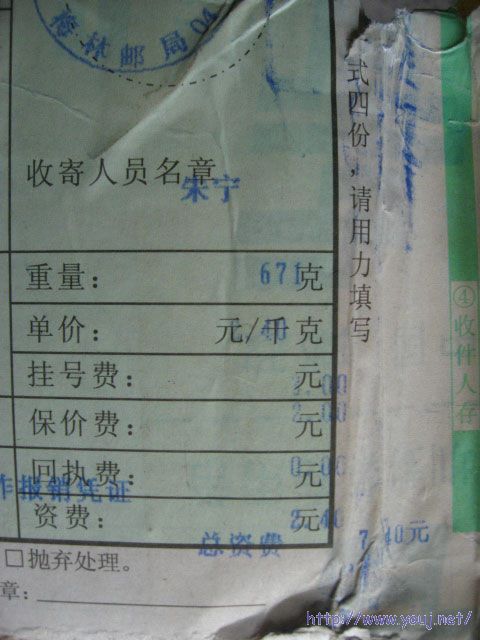 梅林邮局 04
式四份，请用力填写
收寄人员名章
朱宁
重量： 671 克
单价： 元/千克
挂号费： 元
保价费： 2.00 元
回执费： 0.00 元
作报销凭证
资费： 2.40 元
总资费 7.40元
□抛弃处理。
章：
④收件人存
http://www.youj.net/